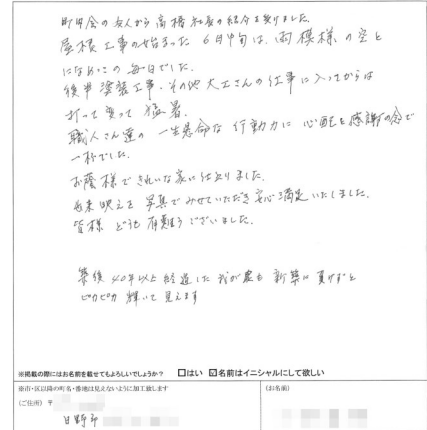 町田会の友人から高橋社長の紹介を受けました。
屋根工事の始まった6月中旬は、雨模様の空と
にらめっこの毎日でした。
後半塗装工事、その他大工さんの仕事に入ってからは
打って変って猛暑。
職人さん達の一生懸命な行動力に心配と感謝の念で
一杯でした。
お蔭様できれいな家に仕上りました。
出来映えを写真でみせていただき安心満足いたしました。
皆様どうも有難うございました。
築後40年以上経過した我が家も新築に負けずと
ピカピカ輝いて見えます
※掲載の際にはお名前を載せてもよろしいでしょうか? □はい ☑名前はイニシャルにして欲しい
※市・区以降の町名・番地は見えないように加工致します
(お名前)
(ご住所) 〒
日野市